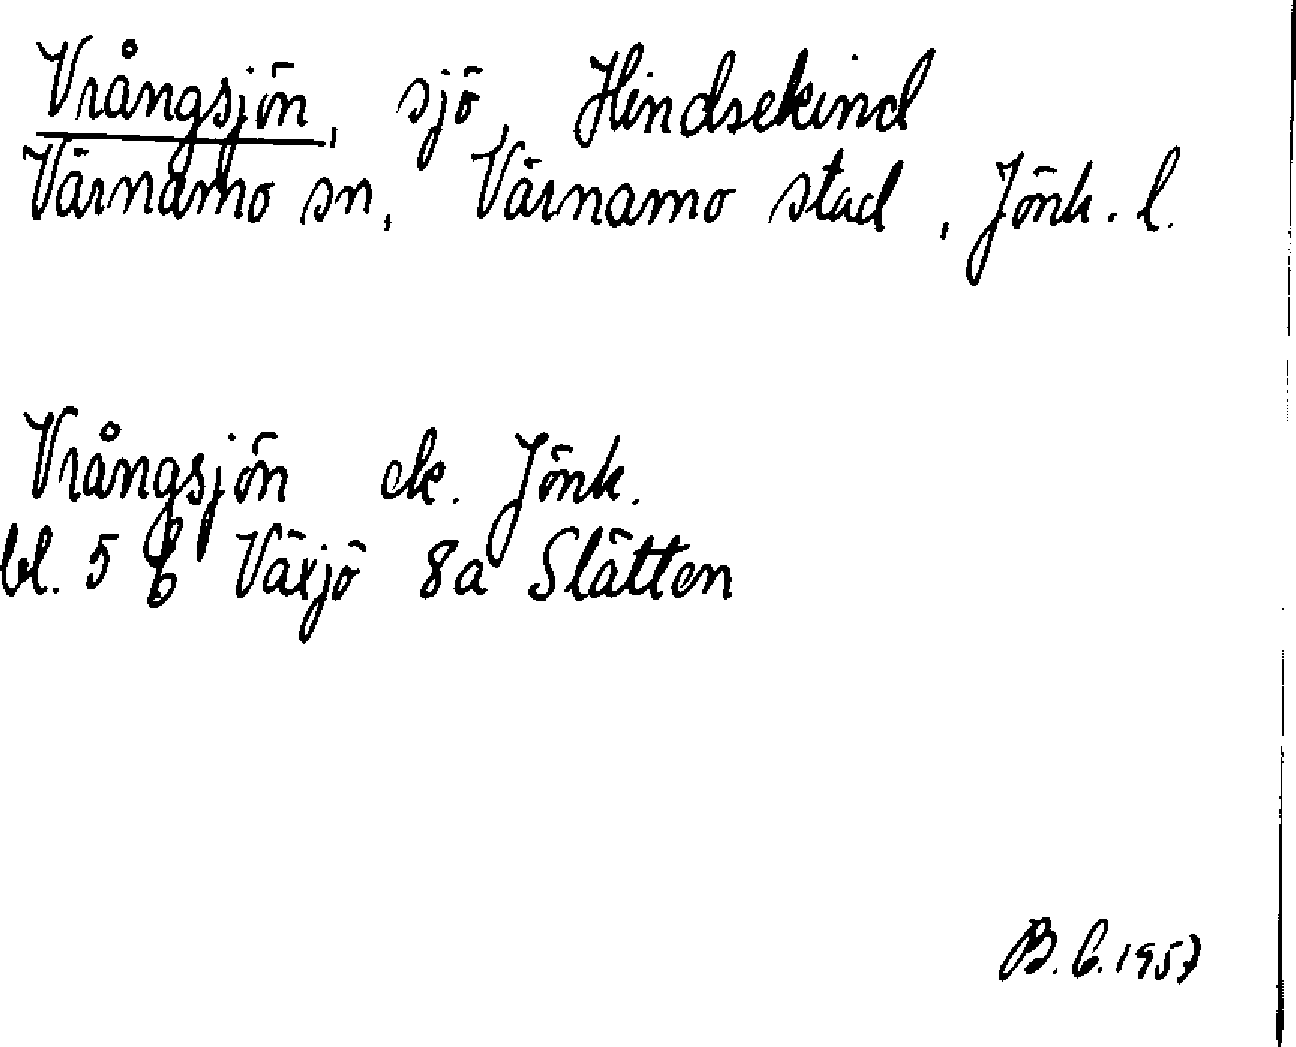 Vrångsjön, sjö, Hindsekind
Värnamo sn, Värnamo stad, Jönk. l.
Vrångsjön ek. Jönk.
bl. 5 E Växjö 8a Slätten
B.C. 1957